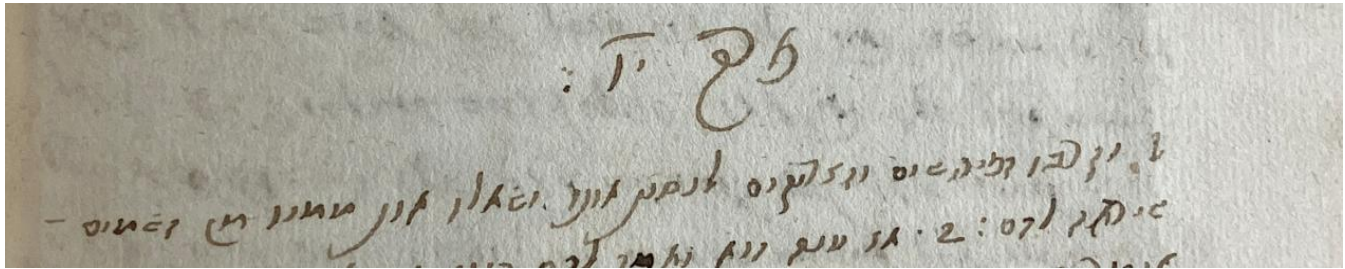 פרק יו :
1. ויקרבו הפירושים והצדוקים לנסות אותו ושאלו אות ממנו מן השמים –
שיראה להם : 2. אז ענה הוא ואמר להם